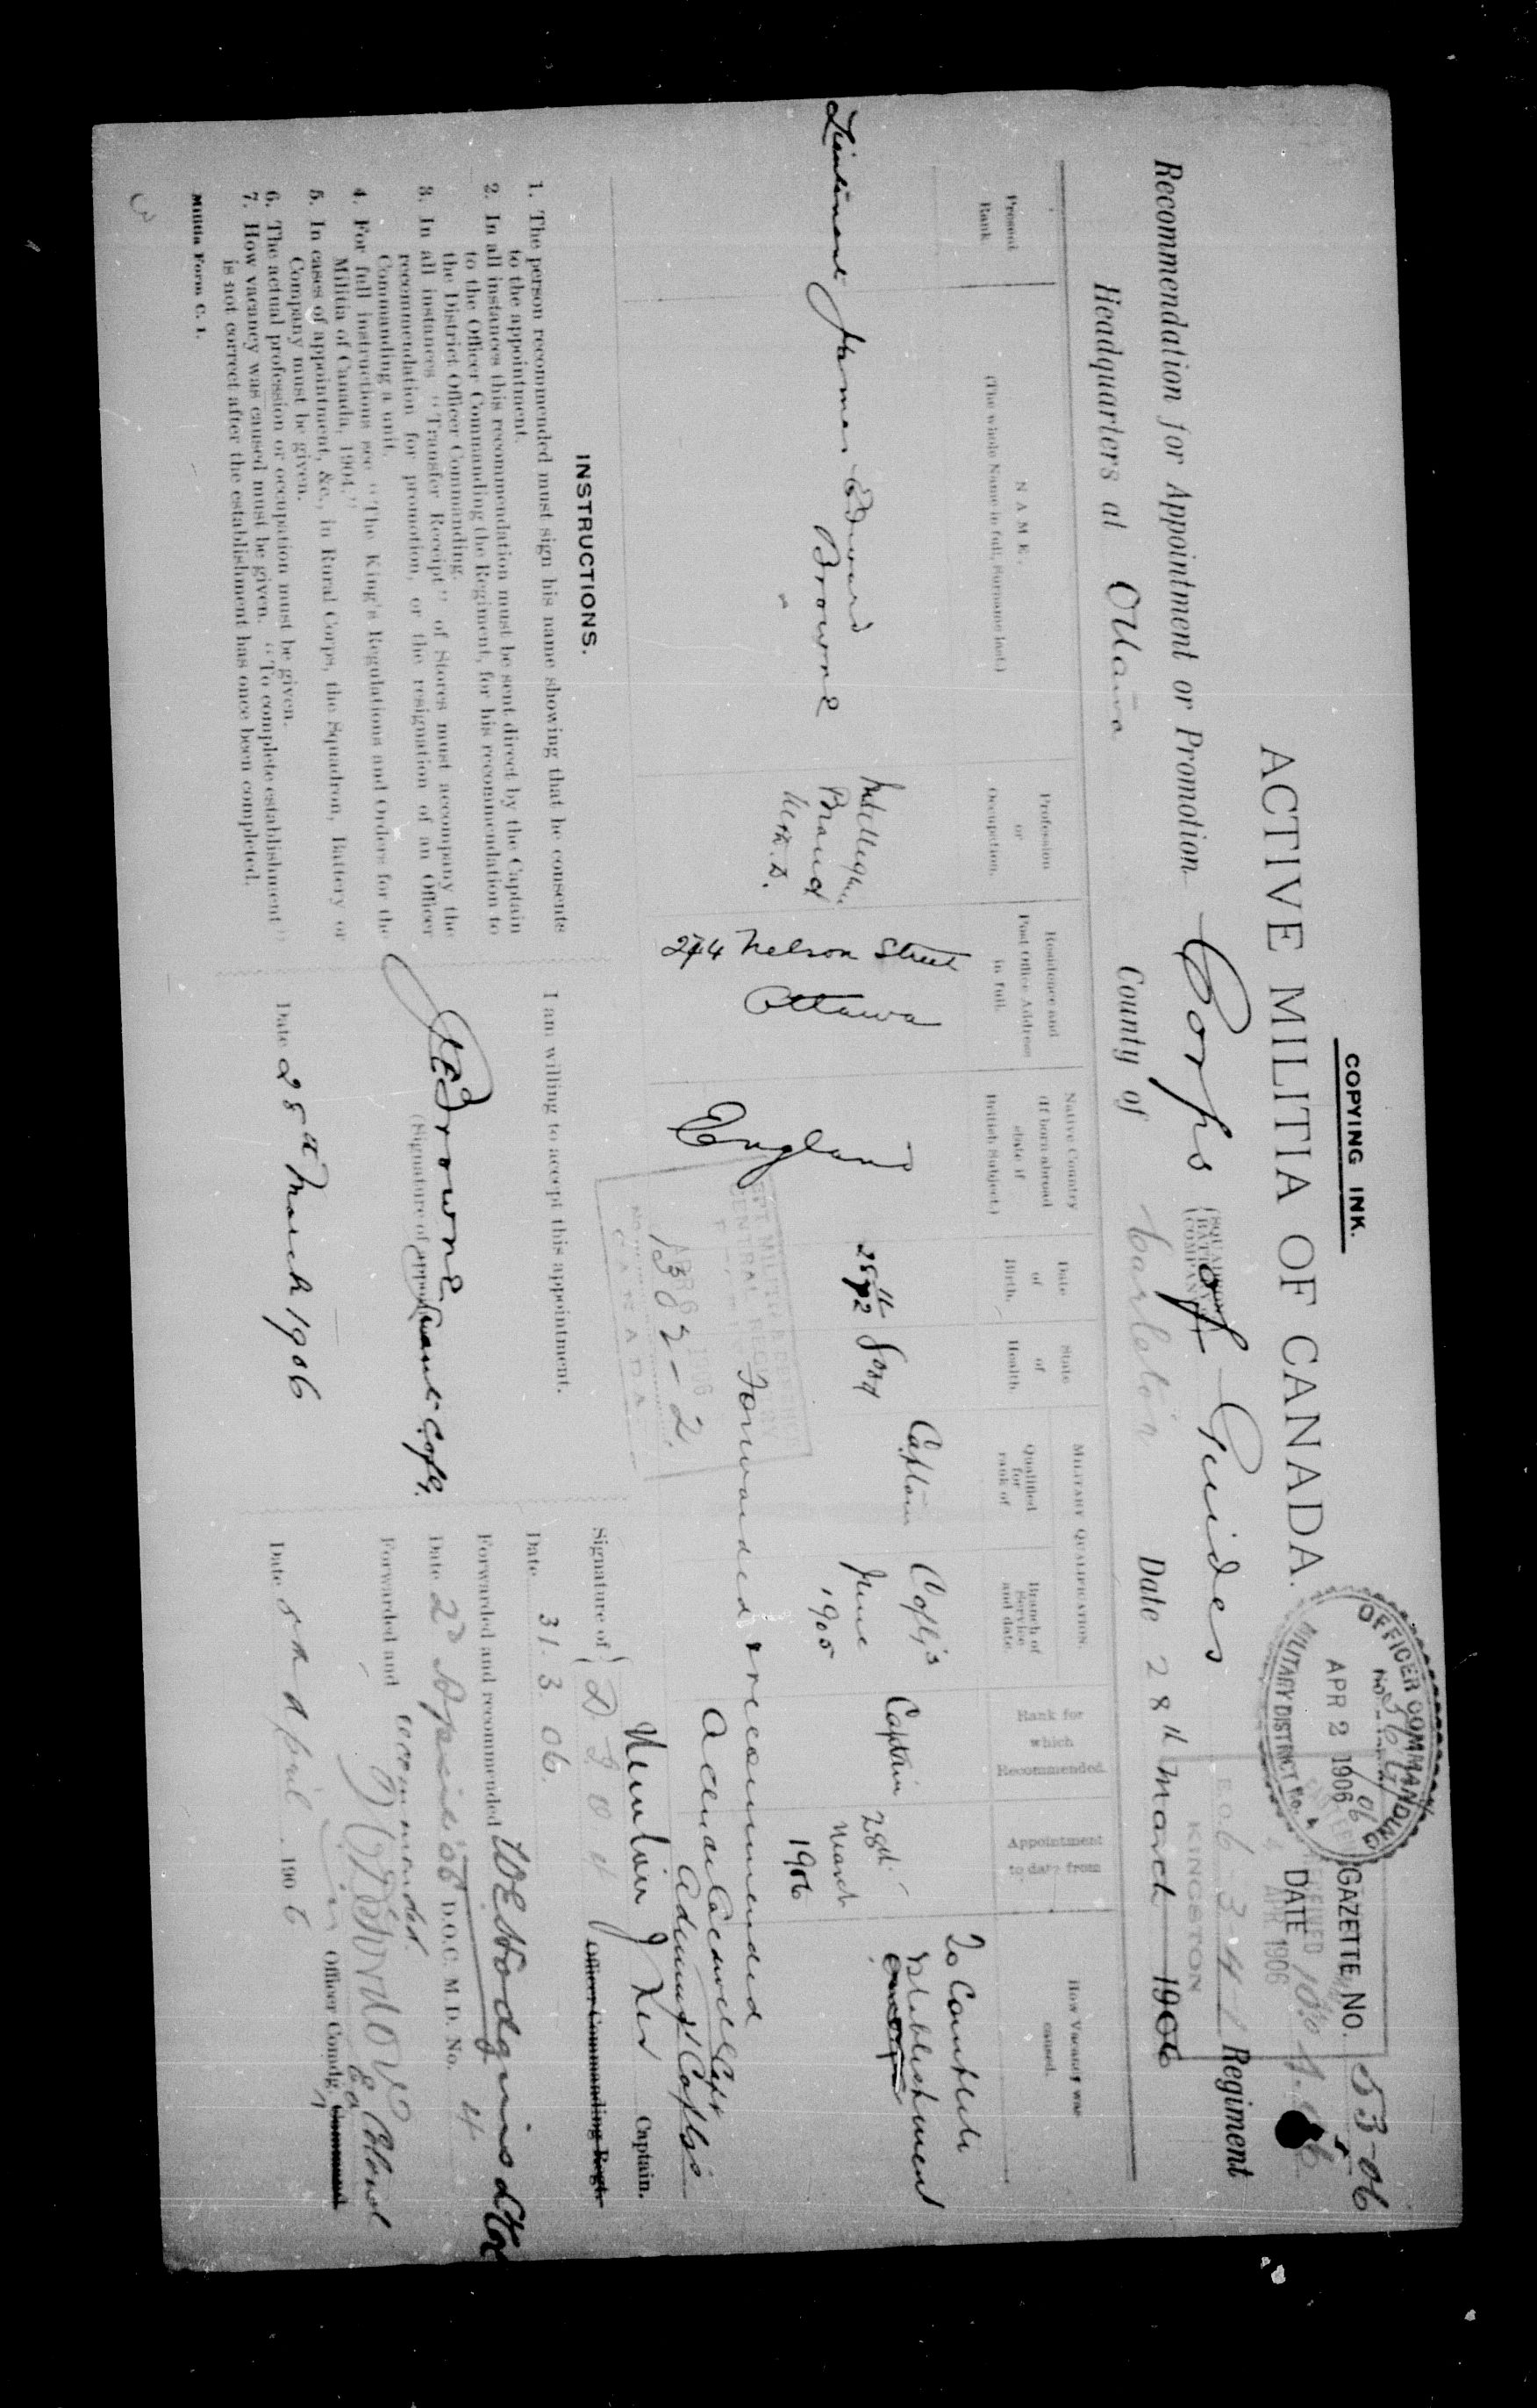 COPYING INK.
ACTIVE MILITIA OF CANADA.
GAZETTE NO. 53-06
DATE
OFFICER COMMANDING
APR 2 1906
MILITARY DISTRICT No. 4
KINGSTON
APR 1906
Recommendation for Appointment or Promotion Corps of Guides Regiment
Headquarters at Ottawa County of Carleton Date 28th March 1906
Present Rank
NAME. (The whole Name in full, Surname last.)
Profession or Occupation.
Residence and Post Office Address in full.
Native Country (If born abroad state if British Subject)
Date of Birth.
State of Health.
MILITARY QUALIFICATION.
Qualified for rank of
Branch of Service and date.
Rank for which Recommended.
Appointment to date from
How Vacancy was caused.
Lieutenant James Edward Browne
Intelligence Branch
244 Nelson Street
Ottawa
England
Good
Captain
June 1905
Captain
28th March 1906
To Complete Establishment
Forwarded & recommended
INSTRUCTIONS.
1. The person recommended must sign his name showing that he consents
to the appointment.
2. In all instances this recommendation must be sent direct by the Captain
to the Officer Commanding the Regiment, for his recommendation to
the District Officer Commanding.
3. In all instances "Transfer Receipt" of Stores must accompany the
recommendation for promotion, or the resignation of an Officer
Commanding a unit.
4. For full instructions see "The King's Regulations and Orders for the
Militia of Canada, 1904."
5. In cases of appointment, &c., in Rural Corps, the Squadron, Battery or
Company must be given.
6. The actual profession or occupation must be given.
7. How vacancy was caused must be given. "To complete establishment"
is not correct after the establishment has once been completed.
Militia Form C. 1.
I am willing to accept this appointment.
J E Browne
(Signature of
Date 28th March 1906
Captain.
Signature of
Officer Commanding Regt.
Date 31. 3. 06.
Forwarded and recommended W E Hodgins
D.O.C. M.D. No. 4
Forwarded and recommended.
Colonel
Officer Comdg. Command
Date April 1906